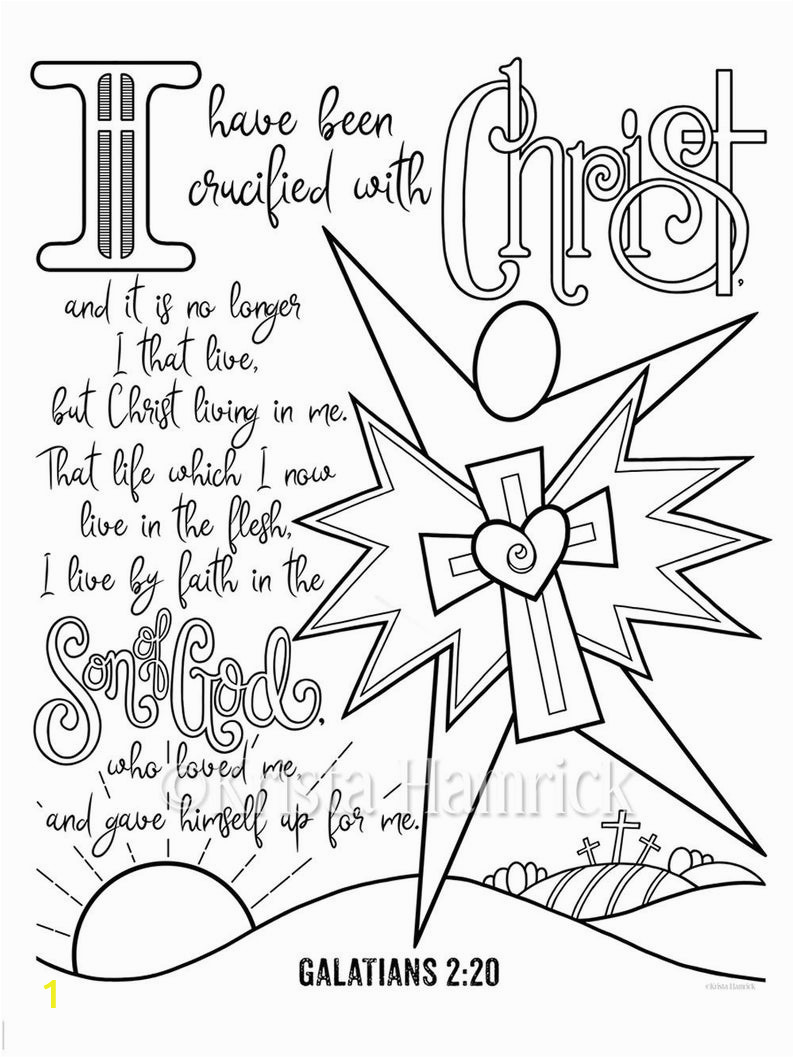 I have been
crucified with Christ,
and it is no longer
I that live,
but Christ living in me.
That life which I now
live in the flesh,
I live by faith in the
Son of God,
who loved me,
and gave himself up for me.
©Krista Hamrick
GALATIANS 2:20
©Krista Hamrick
1